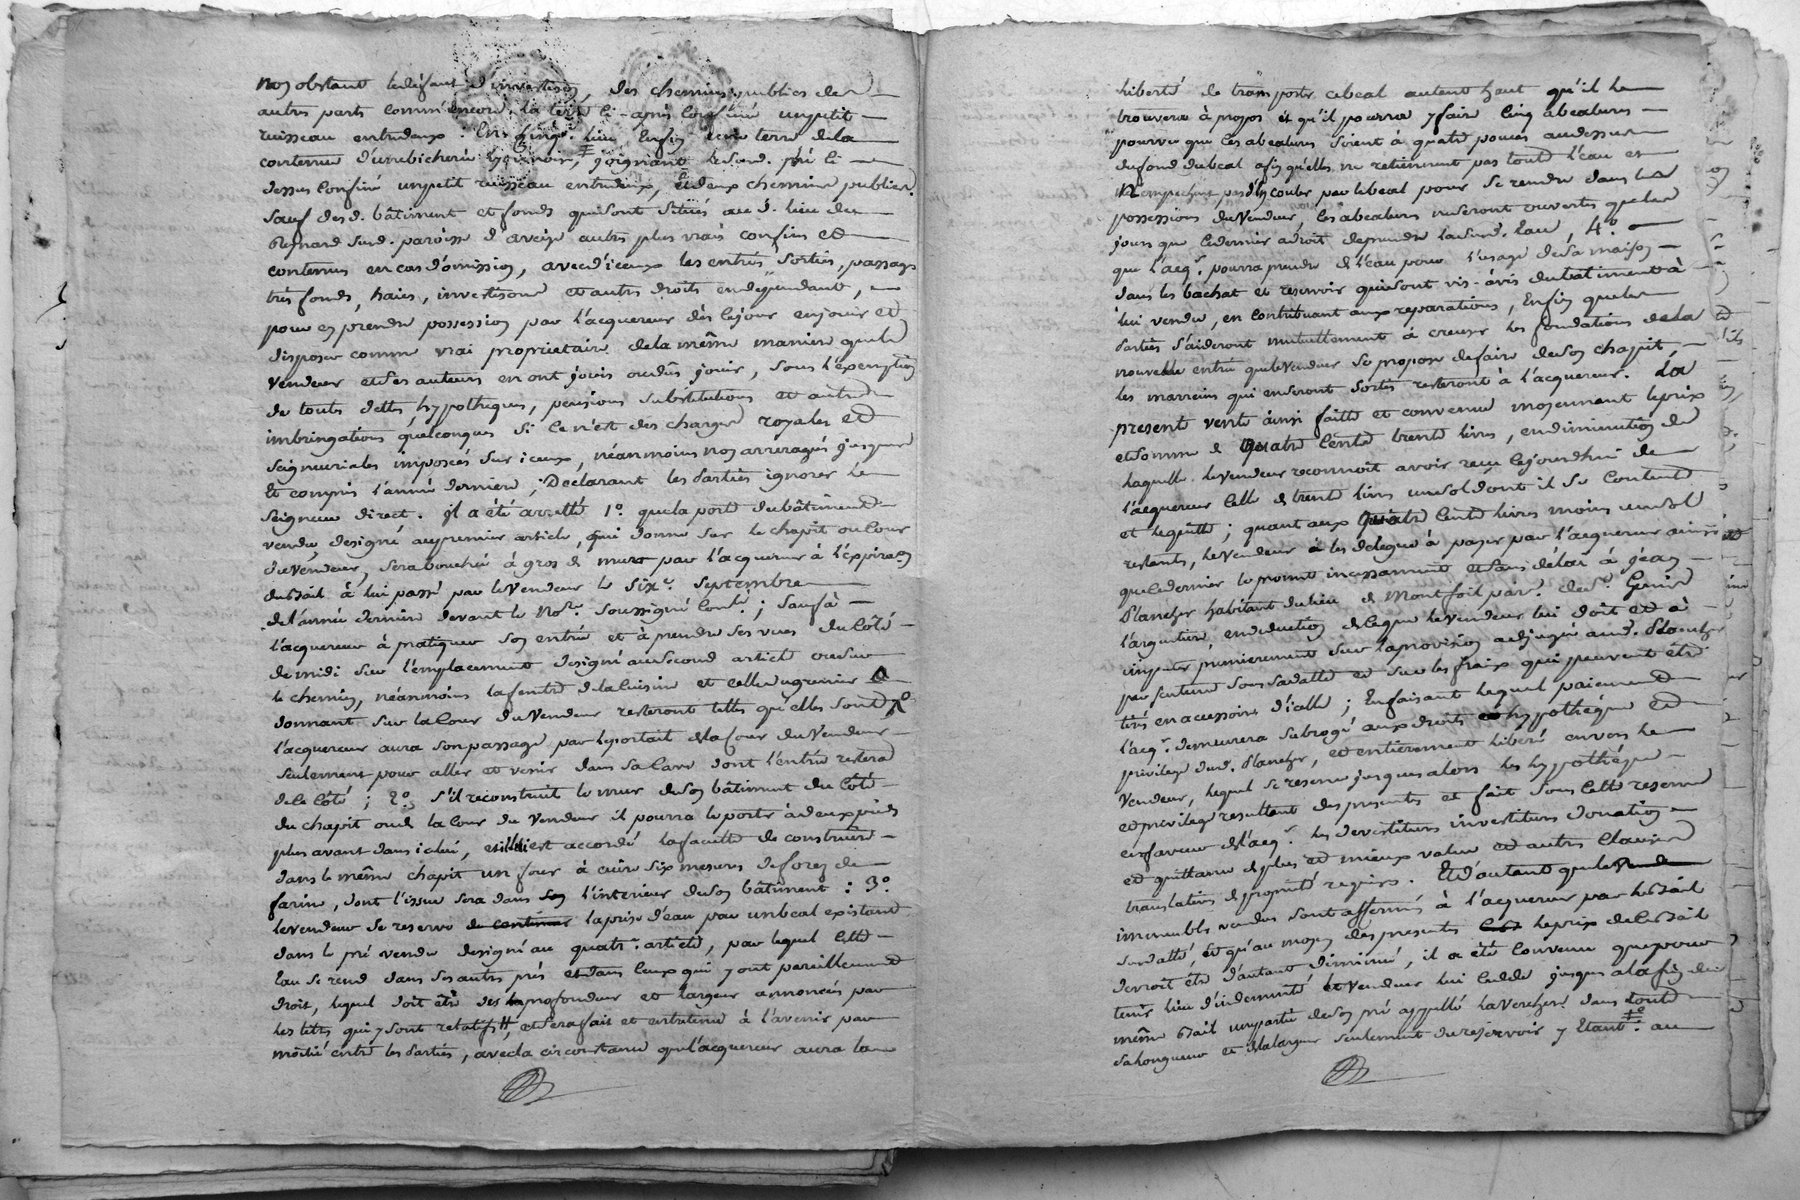 Non obstant le défaut d'investison, des chemins publics de
autres parts comm'encore la terre ci-après confinée un petit
ruisseau entredeux. En cinq.e lieu Enfin une terre de la
contenue d'une bicherée environ, joignant le surd. pré ci
dessus confiné un petit ruisseau entredeux, et deux chemins publics.
sauf desd. bâtiment et fonds qui sont situés au d. lieu de
Regnard surd. paroisse d'aveize autres plus vrais confins et
contenus en cas d'omission, avec d'iceux les entrées sorties, passage
très fonds, haies, investisons et autres droits en dépendants,
pour en prendre possession par l'acquereur dès le jour en jouir et
disposer comme vrai proprietaire de la même maniere que le
vendeur et ses auteurs en ont joui ou dus jouir, sous l'exemption
de touts dettes hypotheques, pensions substitutions et autres
imbringations quelconques si ce n'est des charges royales et
seigneuriales imposées sur iceux, néanmoins non arreragées jusques
et compris l'année derniere; Déclarant les parties ignorer le
seigneur direct. il a été arretté 1°. que la porte du bâtiment
vendu, designé au premier article, qui donne sur le chapit ou cour
du vendeur, sera bouchée à gros de murs par l'acquereur à l'expiration
du bail à lui passé par le vendeur le six.e septembre
de l'année derniere devant le No.re soussigné cont.lé; sauf à
l'acquereur à pratiquer son entrée et à prendre ses vues du côté
de midi sur l'emplacement designé au second article ou sur
le chemin, néanmoins la fenetre de la cuisine et celle du grenier
donnant sur la cour du vendeur resteront telles qu'elles sont
l'acquereur aura son passage par le portail de la cour du vendeur
seulement pour aller et venir dans sa cave dont l'entrée restera
de ce côté; 2°. s'il reconstruit le mur de son bâtiment du côté
du chapit ou de la cour du vendeur il pourra le porter à deux pieds
plus avant dans icelui, et il lui est accordé la faculté de construire
dans le même chapit un four à cuire six mesures de forez de
farine, dont l'issue sera dans l'interieur de son bâtiment: 3°.
le vendeur se reserve de continuer la prise d'eau par un béal existant
dans le pré vendu designé au quatr.e article, par lequel cette
eau se rend dans ses autres prés et dans ceux qui y ont pareillement
droit, lequel doit être des profondeur et largeur annoncées par
les titres qui y sont relatifs, et sera fait et entretenu à l'avenir par
moitié entre les parties, avec la circonstance que l'acquereur aura la
liberté de transporter ce béal autant haut qu'il le
trouvera à propos et qu'il pourra y faire cinq abeatures
pourvu que ces abeatures soient à quatre pouces au dessus
du fond du béal afin qu'elles ne retiennent pas toute l'eau et
n'empechent pas d'en couler par le béal pour se rendre dans les
possessions du vendeur, ces abeatures ne seront ouvertes que les
jours que ce dernier a droit de prendre la surd. eau, 4°.
que l'acq.r pourra prendre de l'eau pour l'usage de sa maison
dans les bachat et reservoir qui sont vis-àvis du batiment à
lui vendu, en contribuant aux reparations, Enfin que les
parties s'aideront mutuellement à creuser les fondations de la
nouvelle entrée que le vendeur se propose de faire de son chapit,
les marreins qui en seront sortis resteront à l'acquereur. La
presente vente ainsi faitte et convenue moyennant le prix
et somme de quatre cents trente livres, en diminution de
laquelle le vendeur reconnoit avoir reçu ce jourdhui de
l'acquereur celle de trente livres un sol dont il se contente
et le quitte; quant aux quatre cents livres moins un sol
restants, le vendeur les delegue à payer par l'acquereur ainsi
que ce dernier le promet incessamment et sans délai à jean
Blancher habitant du lieu de Montfoit par. de S.t Genis
l'argentiere, en deduction de ce que le vendeur lui doit et à
imputer premierement sur la provision adjugée aud. Blancher
par sentence sous sa datte et sur les fraix qui peuvent être
tirés en accessoires d'icelle; En faisant lequel paiement
l'acq.r demeurera subrogé aux droits hypothéque et
privilege dud. Blancher, et entierement liberé envers le
vendeur, lequel se reserve jusques alors les hypothéque
et privilege resultant des presentes et fait sous cette reserve
en faveur de l'acq.r les devestitures investitures donation
et quittance de plus et mieux value et autres clauses
translatives de propriété requises. Et d'autant que les
immeubles vendus sont affermés à l'acquereur par le bail
surdatté, et qu'au moyen des presentes le prix de ce bail
devroit être d'autant diminué, il a été convenu que pour
tenir lieu d'indemnité le vendeur lui cedde jusques à la fin du
même bail une partie de son pré appellé la verchere dans toute
sa longueur et de la largeur seulement du reservoir y étant. au